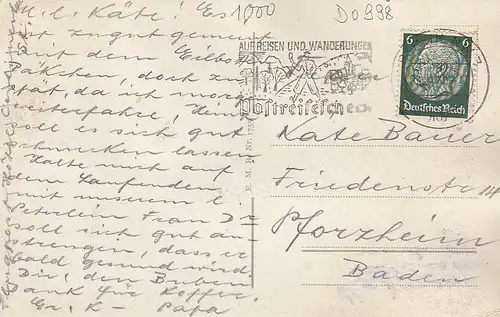 M. l. Käte! Es 1000
ist zu gut gemeint
mit dem Eilbot
Päkchen, doch zu
spät, da ich morg
weiterfahre. Heinz
soll es sich gut
schmecken lassen
Halte mich auf
dem Laufenden
mit unserem l.
Peterlein Frau Dr
soll sich gut an-
strengen, dass er
bald gesund wird
Dir, den Buben
Dank für Koffer.
Gr. K - Papa
Do 998
AUF REISEN UND WANDERUNGEN
Postreisesche
6 6
Deutsches Reich
E. M. B. Nr.
Kate Bauer
Friedenstr 111
Pforzheim
Baden